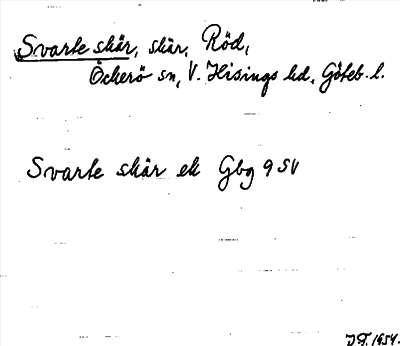 Svarte skär, skär, Röd,
Öckerö sn, V. Hisings hd, Göteb. l.
Svarte skär ek Gbg 9 SV
1954.